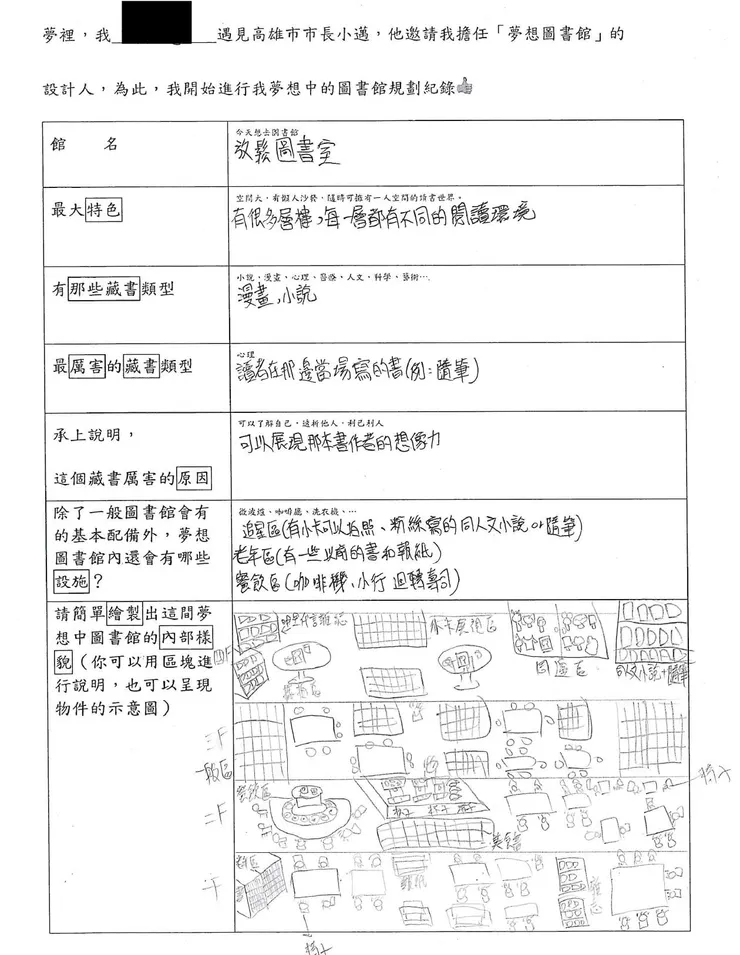 夢裡，我
遇見高雄市市長小邁，他邀請我擔任「夢想圖書館」的
設計人，為此，我開始進行我夢想中的圖書館規劃紀錄
館 名
今天想去圖書館
放鬆圖書室
最大特色
空間大，有懶人沙發，隨時可擁有一人空間的讀書世界。
有很多層樓，每一層都有不同的閱讀環境
有那些藏書類型
小說，漫畫、心理、醫療、人文，科學、藝術….
漫畫，小說
最厲害的藏書類型
心理
讀者在那邊當場寫的書(例:隨筆)
承上說明，
這個藏書厲害的原因
可以了解自己，透析他人，利己利人
可以展現那本書作者的想像力
除了一般圖書館會有
的基本配備外，夢想
圖書館內還會有哪些
設施？
微波爐、咖啡廳、洗衣機、…
追星區(有小卡可以拍照、粉絲寫的同人文小說or隨筆)
老年區(有一些以前的書和報紙)
餐飲區(咖啡機、小行迴轉壽司)
請簡單繪製出這間夢
想中圖書館的內部樣
貌（你可以用區塊進
行說明，也可以呈現
物件的示意圖）
小卡展視區
同人文小說+隨筆
三F
一般區
椅子
二F
餐飲區
美食區
報紙
椅子